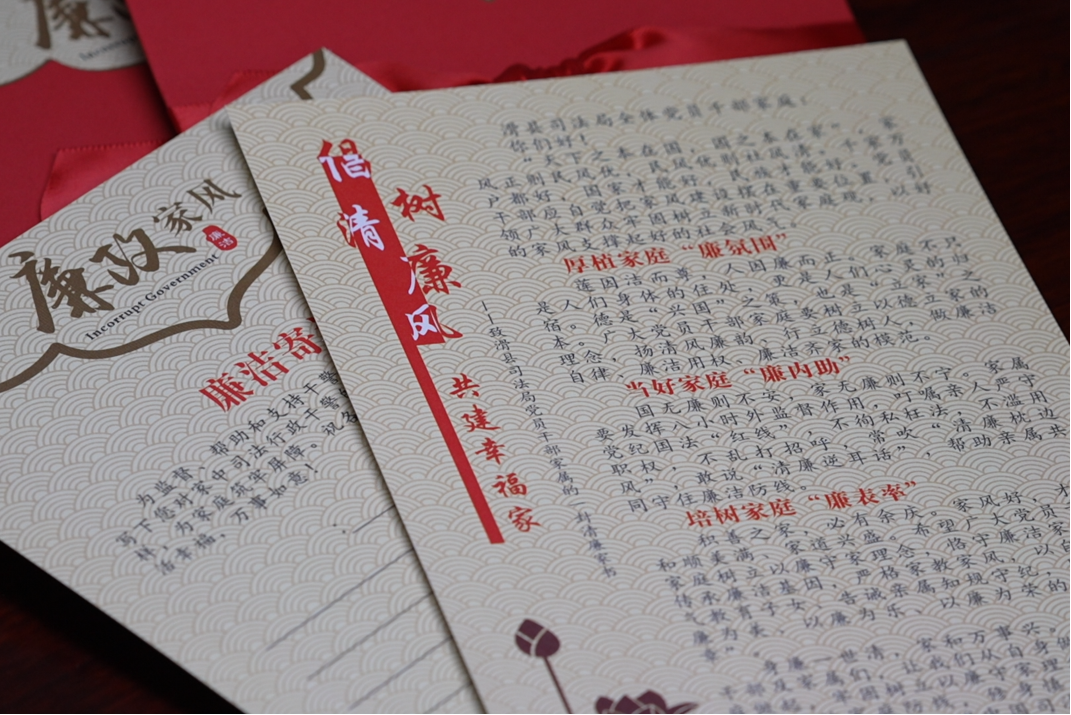 廉政家风
廉洁
Incorrupt Government
廉洁寄
为监督、帮助和支持干警
写下您对家中司法行政干警
林，为家庭筑牢屏障。祝各
洁幸福，万事如意！
倡清
树廉风
共建幸福家
——致滑县司法局党员干部家属的一封清廉家书
滑县司法局全体党员干部家庭：
你们好！
“天下之本在国，国之本在家”，家
风正则民风优，民风优则社风清。千家万
户都好，国家才能好，民族才能好。党员
干部应自觉把家风建设摆在重要位置，引
领广大群众牢固树立新时代家庭观，以好
的家风支撑起好的社会风气。
厚植家庭“廉氛围”
莲因洁而尊，人因廉而正。家庭不只
是人们身体的住处，更是人们心灵的归
宿。德是“兴国”之策，也是“立家”之
本。广大党员干部家庭要树立以德立家的
理念，扬清风廉韵、行立德树人，做廉洁
自律、廉洁用权、廉洁齐家的模范。
当好家庭“廉内助”
国无廉则不安，家无廉则不宁。家属
要发挥八小时外监督作用，叮嘱亲人严守
党纪国法“红线”，不徇私枉法，不滥用
职权，不乱打招呼，常吹“清廉枕边
风”，敢说“清廉逆耳话”，帮助亲属共
同守住廉洁防线。
培树家庭“廉表率”
积善之家，必有余庆。家风好，才
和顺美满、家道兴盛。希望广大党员
家庭树立以廉守家理念，恪守廉洁家
传承廉洁基因，严格家教家风，以自
气教育子女，告诫亲属知规守纪，
廉为美，以廉为乐、以廉为荣的
章”。
身廉一世清，家和万事兴。
干部及家属们，让我们从自身做